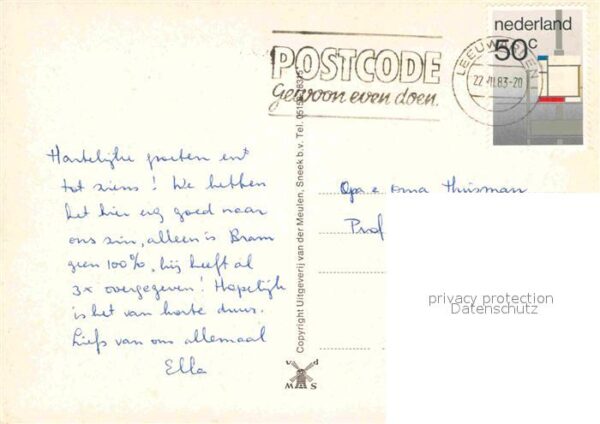 nederland
50c
LEEUWARDEN
POSTCODE
Gewoon even doen.
Hartelijke groeten en
tot ziens! We hebben
het hier erg goed naar
ons zin, alleen is Bram
geen 100%, hij heeft al
3x overgegeven! Hopelijk
is het van korte duur.
Liefs van ons allemaal
Ella
Copyright Uitgeverij van der Meulen, Sneek b.v. Tel.
v d
M S
Opa e oma Thisman
Prof
privacy protection
Datenschutz